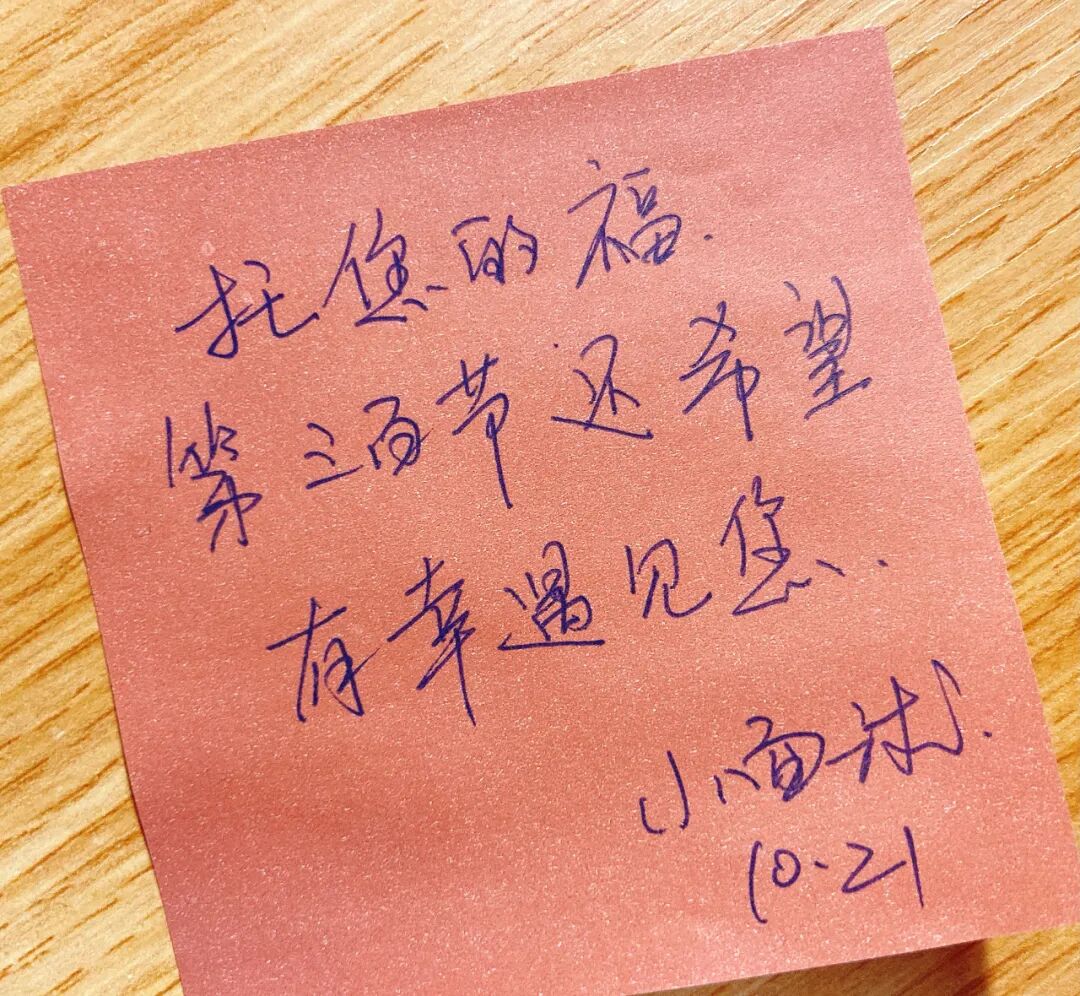 托您的福.
第三百节还希望
有幸遇见您.
小面
10.21